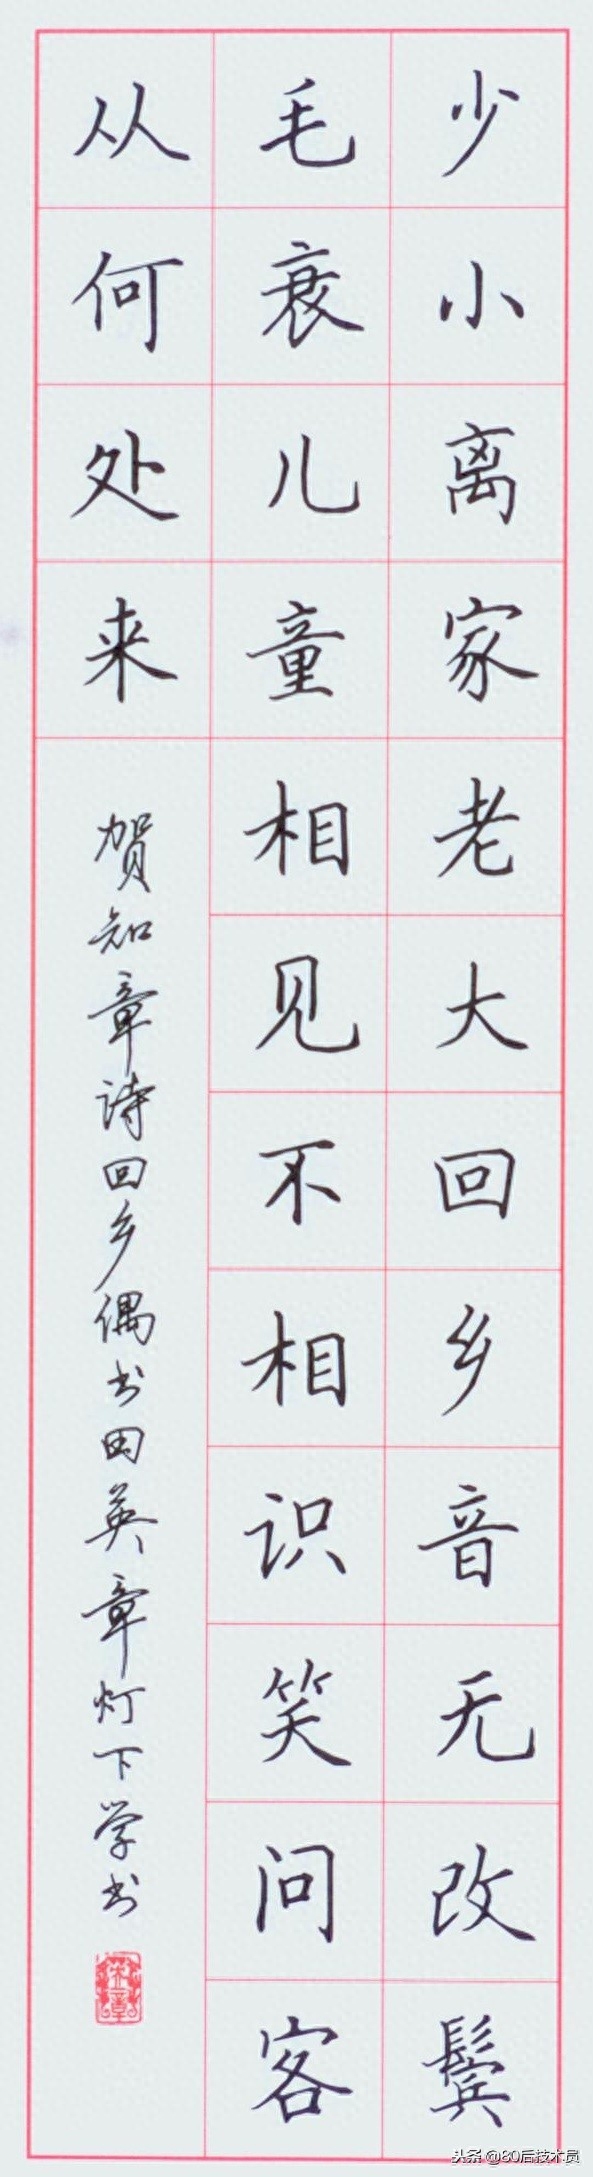 少小离家老大回乡音无改鬓
毛衰儿童相见不相识笑问客
从何处来
贺知章诗回乡偶书田英章灯下学书
英章
头条@80后技术员